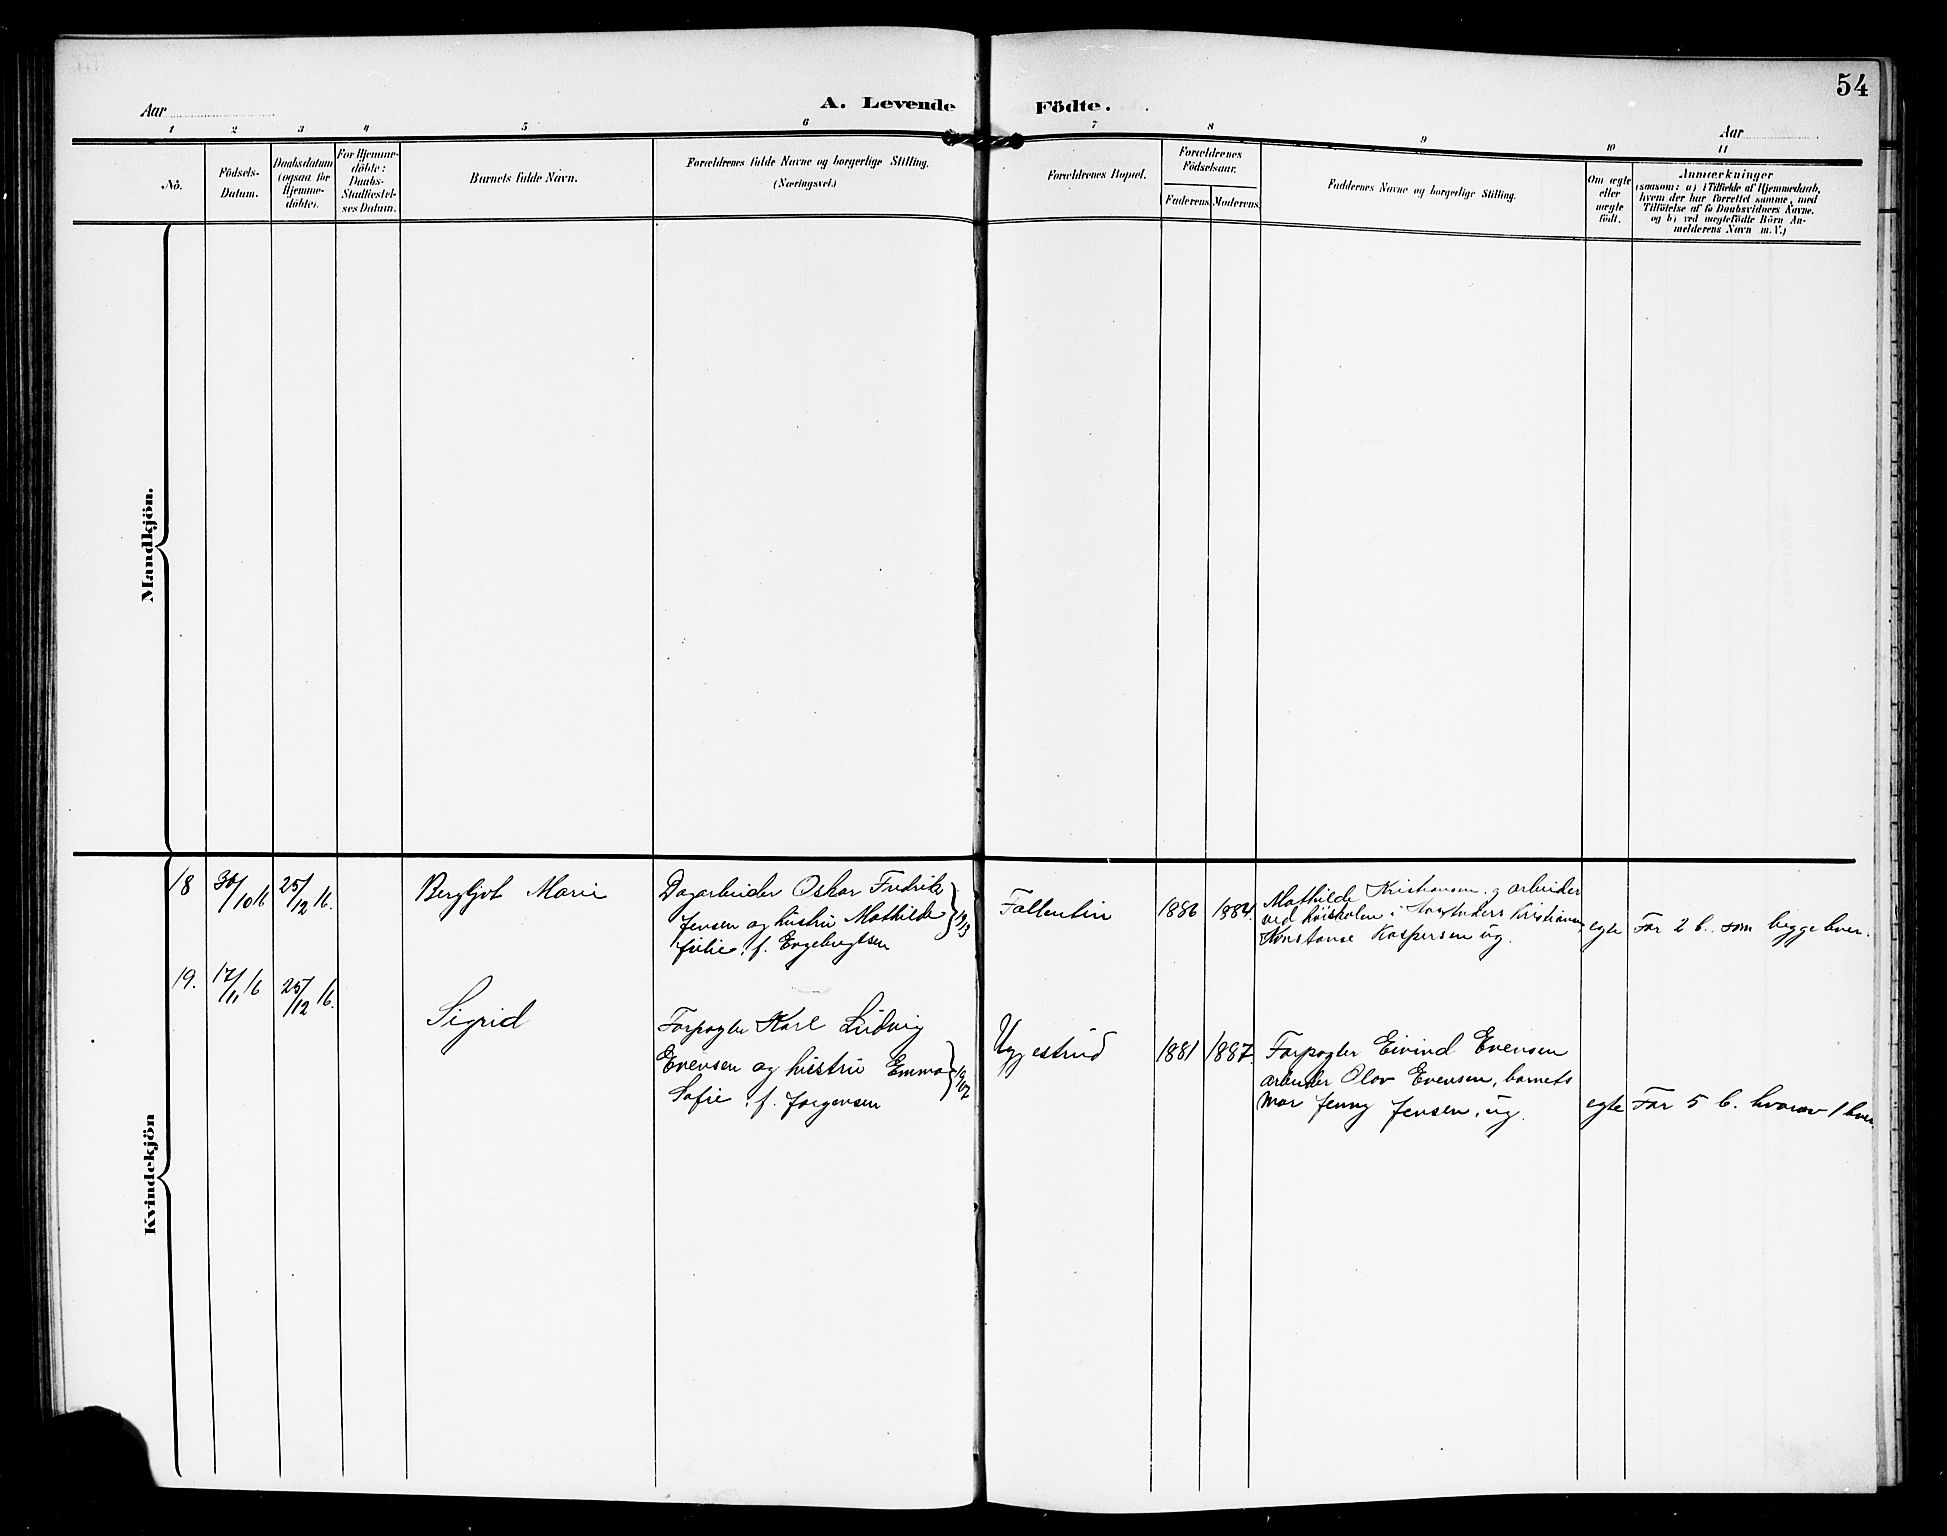 54
Aar
A. Levende
Födte.
Aar
1 2 3 4 5 6 7 8 9 10 11
Nö.
Födsels-
Datum.
Daabsdatum
(ogsaa for
Hjemme-
döbte).
For Hjemme-
döbte:
Daabs-
Stadfæstel-
ses Datum.
Barnets fulde Navn.
Forældrenes fulde Navne og borgerlige Stilling.
(Næringsvei.)
Forældrenes Bopæl.
Forældrenes
Födselsaar.
Faderens
Moderens
Faddernes Navne og borgerlige Stilling.
Om ægte
eller
uægte
født.
Anmærkninger
(saasom: a) i Tilfælde af Hjemmedaab,
hvem der har forrettet samme, med
Tilföielse af to Daabsvidners Navne.
og b) ved uægtefödte Börn An-
melderens Navn m. V.)
Mandkjön.
Kvindekjön
18
30/10 16
25/12 16.
Bergljot Marie
Dagarbeider Oskar Fredrik
Jensen og hustru Mathilde
Julie, f. Engebregtsen
Fallentin
1886
1884.
Mathilde Kristiansen, arbeider
ved Anders Kristiansen
Konstanse Kaspersen ug.
egte
Før 2 b. som begge lever.
19.
17/11 16
25/12 16.
Sigrid
Forpagter Karl Ludvig
Evensen og hustru Emma
Sofie, f. Jørgensen
Uggestrud
1881
1887.
Forpagter Eivind Evensen
arbeider Olav Evensen, barnets
mor Jenny Jensen, ug.
egte
Før 5 b. hvorav 1 lever.